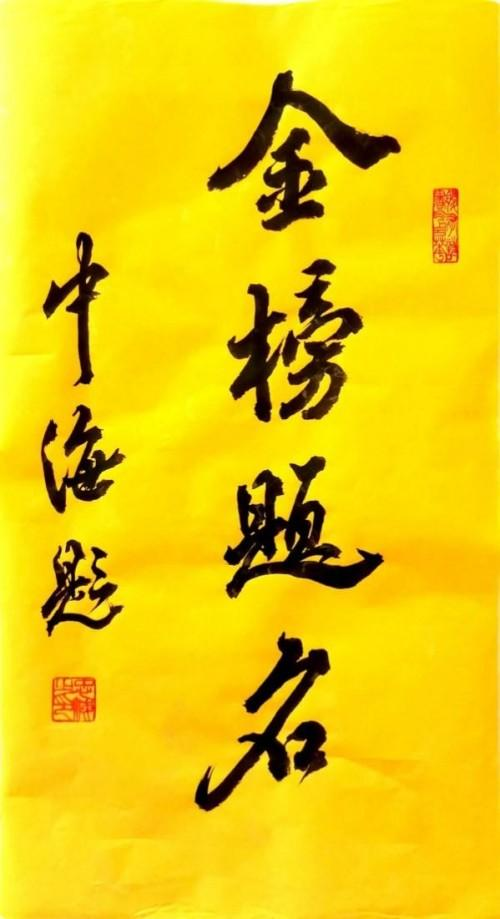 金榜题名
中海题